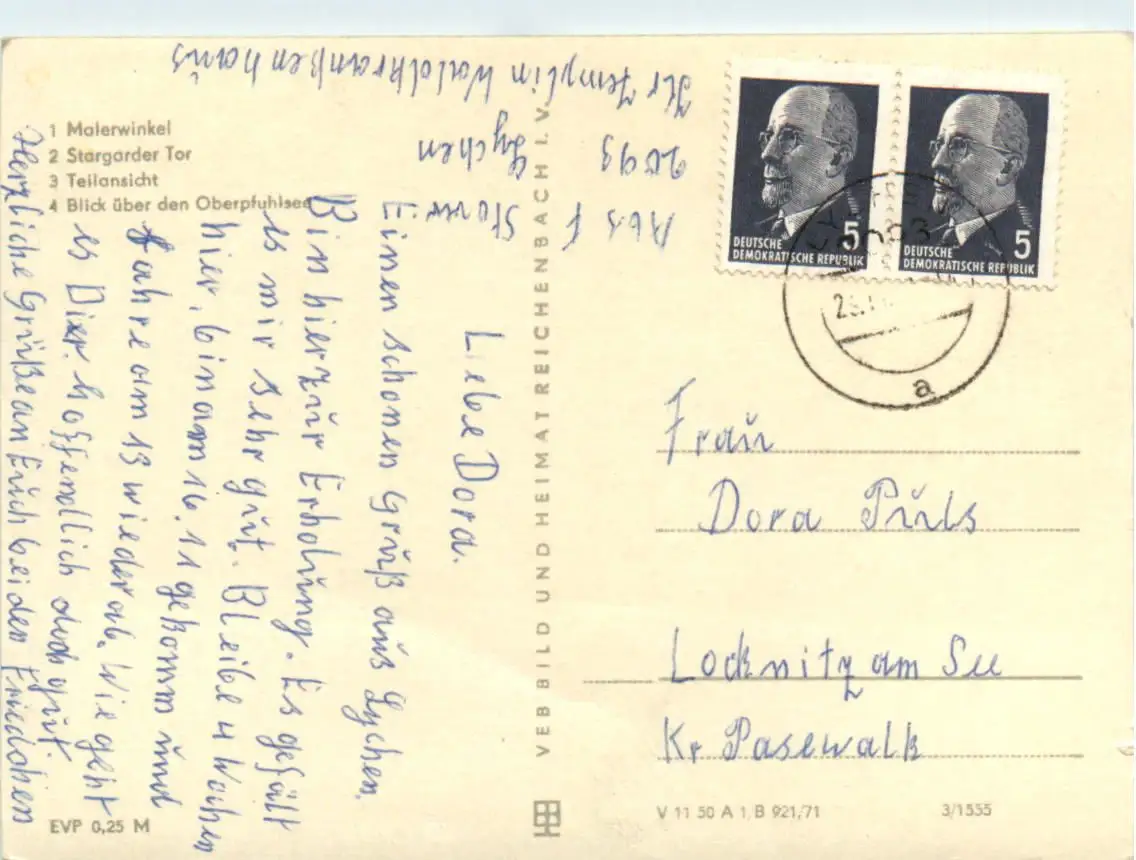 1 Malerwinkel
2 Stargarder Tor
3 Teilansicht
4 Blick über den Oberpfuhlsee
Liebe Dora.
Einen schonen Gruß aus Lychen.
Bin hier zur Erholung. Es gefält
es mir sehr gut. Bleibe 4 Wochen
hier, bin am 16.11 gekomm und
fahre am 13 wieder ab. Wie geht
es Dier. hoffendlich doch gut.
Herzliche Grüße an Euch beiden Friedchen
Abs F
2093 Lychen
Kr Templin Waldkrankenhaus
VEB BILD UND HEIMAT REICHENBACH I. V.
DEUTSCHE
DEMOKRATISCHE REPUBLIK
5
DEUTSCHE
DEMOKRATISCHE REPUBLIK
5
a
Frau
Dora Püls
Locknitz am See
Kr Pasewalk
EVP 0,25 M
V 11 50 A 1 B 921/71
3/1555